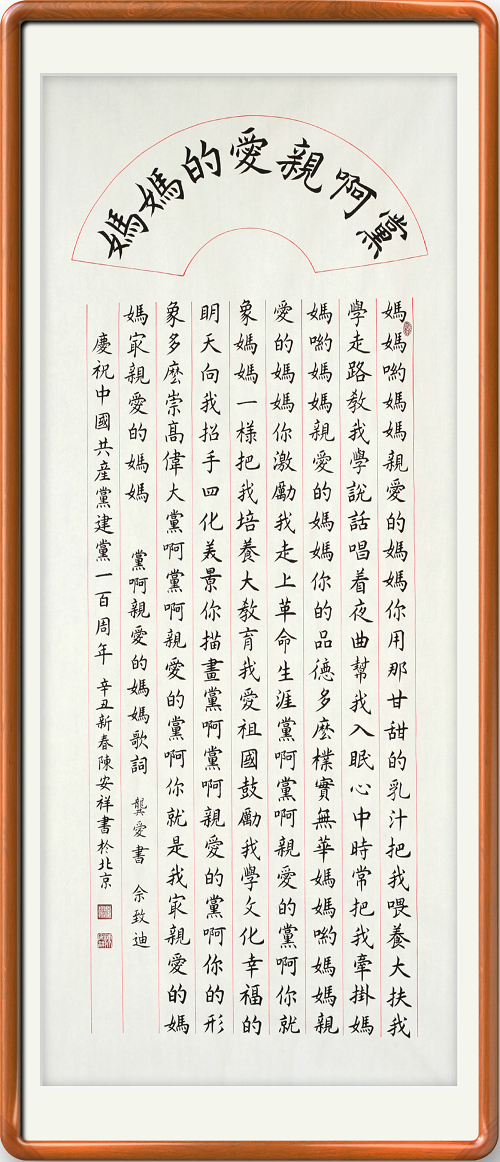 黨啊親愛的媽媽
媽媽喲媽媽親愛的媽媽你用那甘甜的乳汁把我喂養大扶我
學走路教我學說話唱着夜曲幫我入眠心中時常把我牽掛媽
媽喲媽媽親愛的媽媽你的品德多麽樸實無華媽媽喲媽媽親
愛的媽媽你激勵我走上革命生涯黨啊黨啊親愛的黨啊你就
象媽媽一樣把我培養大教育我愛祖國鼓勵我學文化幸福的
明天向我招手四化美景你描畫黨啊黨啊親愛的黨啊你的形
象多麽崇髙偉大黨啊黨啊親愛的黨啊你就是我㝡親愛的媽
媽㝡親愛的媽媽 黨啊親愛的媽媽歌詞 龔愛書 佘致迪
慶祝中國共産黨建黨一百周年 辛丑新春陳安祥書於北京